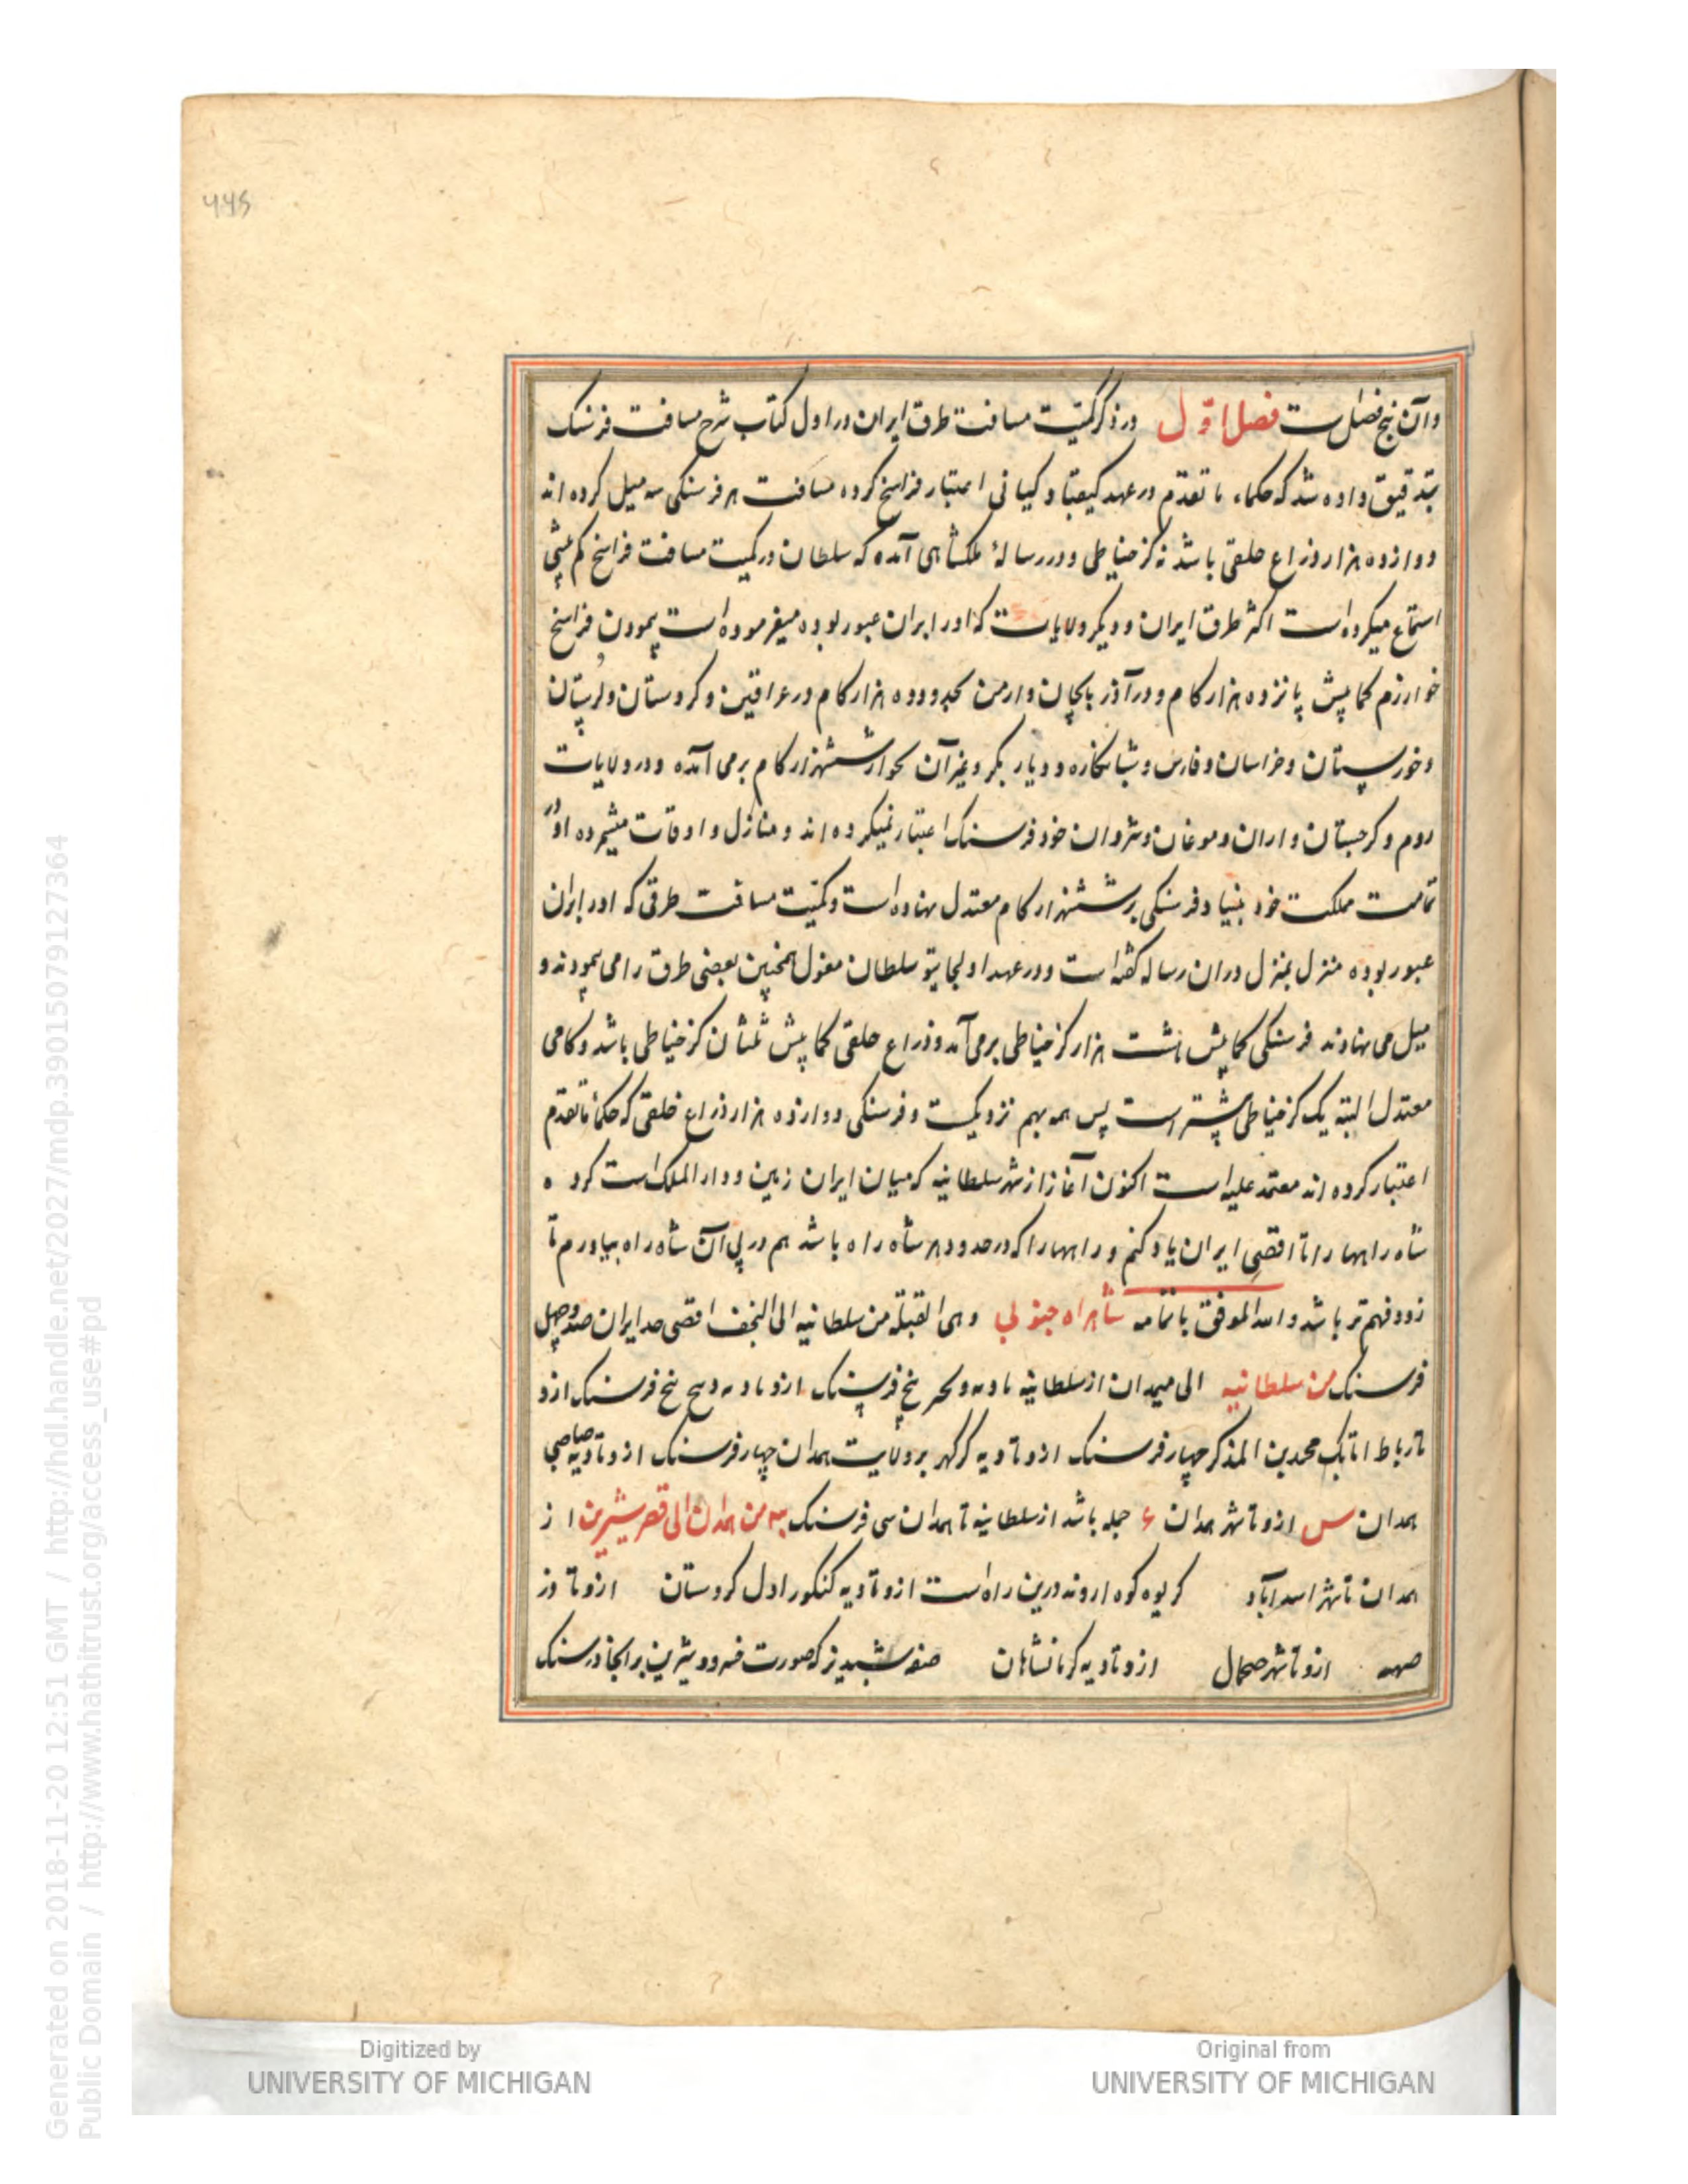 ۴۴۶
وآن پنج فصل است فصل اوّل در ذکر کمیّت مسافت طرق ایران در اول کتاب شرح مسافت فرسنک
بتدقیق داده شد که حکماء ما تقدّم در عهد کیقباد کیانی اعتبار فراسخ کرده مسافت هر فرسنکی سه میل کرده اند
دوازده هزار ذراع خلقی باشد نه کز خیاطی ودر رسالهٔ ملکشاهی آمده که سلطان در کمیت مسافت فراسخ کم بیشی
استماع میکرده است اکثر طرق ایران و دیکر ولایات که اورا بران عبور بوده میفرموده است پیمودن فراسخ
خوارزم کمابیش پانزده هزار کام و در آذربایجان وارمن بحدود ده هزار کام در عراقین وکردستان ولرستان
وخوزستان وخراسان وفارس وشبانکاره ودیار بکر وغیر آن بجوار ششهزار کام برمی آمده ودر ولایات
روم وکرجستان واران وموغان وشروان خود فرسنک اعتبار نمیکرده اند ومنازل واوقات میشمرده او در
تمامت مملکت خود بنیاد فرسنکی بر ششهزار کام معتدل نهاده است وکمیّت مسافت طرقی که اورا بران
عبور بوده منزل بمنزل دران رساله کفته است ودر عهد اولجایتو سلطان مغول همچنین بعضی طرق را می پیمودند و
میل می نهادند فرسنکی کمابیش هشت هزار کز خیاطی برمی آمد وذراع خلقی کمابیش ثلثان کز خیاطی باشد وکامی
معتدل البته یک کز خیاطی بیشتر است پس همه بهم نزدیکست وفرسنکی دوازده هزار ذراع خلقی که حکماء ما تقدم
اعتبار کرده اند معتمد علیه است اکنون آغاز از شهر سلطانیه که میان ایران زمین ودار الملک است کرده
شاه راهها را تا اقصی ایران یاد کنم وراهها را که در حدود هر شاه راه باشد هم در پی آن شاه راه بیاورم تا
زود فهم تر باشد والله الموفق باتمامه شاهراه جنوبی وهی القبلة من سلطانیه الی النجف اقصی حد ایران صد وچهل
فرسنک من سلطانیه الی همدان از سلطانیه تا دیه پنج فرسنک ازو تا دیه پنج فرسنک ازو
تا رباط اتابک محمد بن ایلدکز چهار فرسنک ازو تا دیه کرکهر بر ولایت همدان چهار فرسنک ازو تا دیه
همدان ازو تا شهر همدان ۶ جمله باشد از سلطانیه تا همدان سی فرسنک من همدان الی قصر شیرین از
همدان تا شهر اسدآباد کریوه کوه اروند درین راه است ازو تا دیه کنکور اول کردستان ازو تا دز
ازو تا شهر ازو تا دیه کرمانشاهان صفه شبدیز که صورت خسرو وشیرین برانجا در سنک
Generated on 2018-11-20 12:51 GMT / http://hdl.handle.net/2027/mdp.39015079127364
Public Domain / http://www.hathitrust.org/access_use#pd
Digitized by
UNIVERSITY OF MICHIGAN
Original from
UNIVERSITY OF MICHIGAN